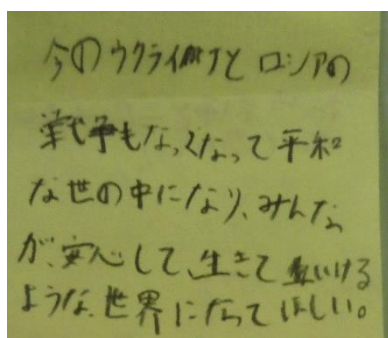 今のウクライナと ロシアの
戦争もなくなって平和
な世の中になり、みんな
が、安心して、生きていける
ような、世界になってほしい。